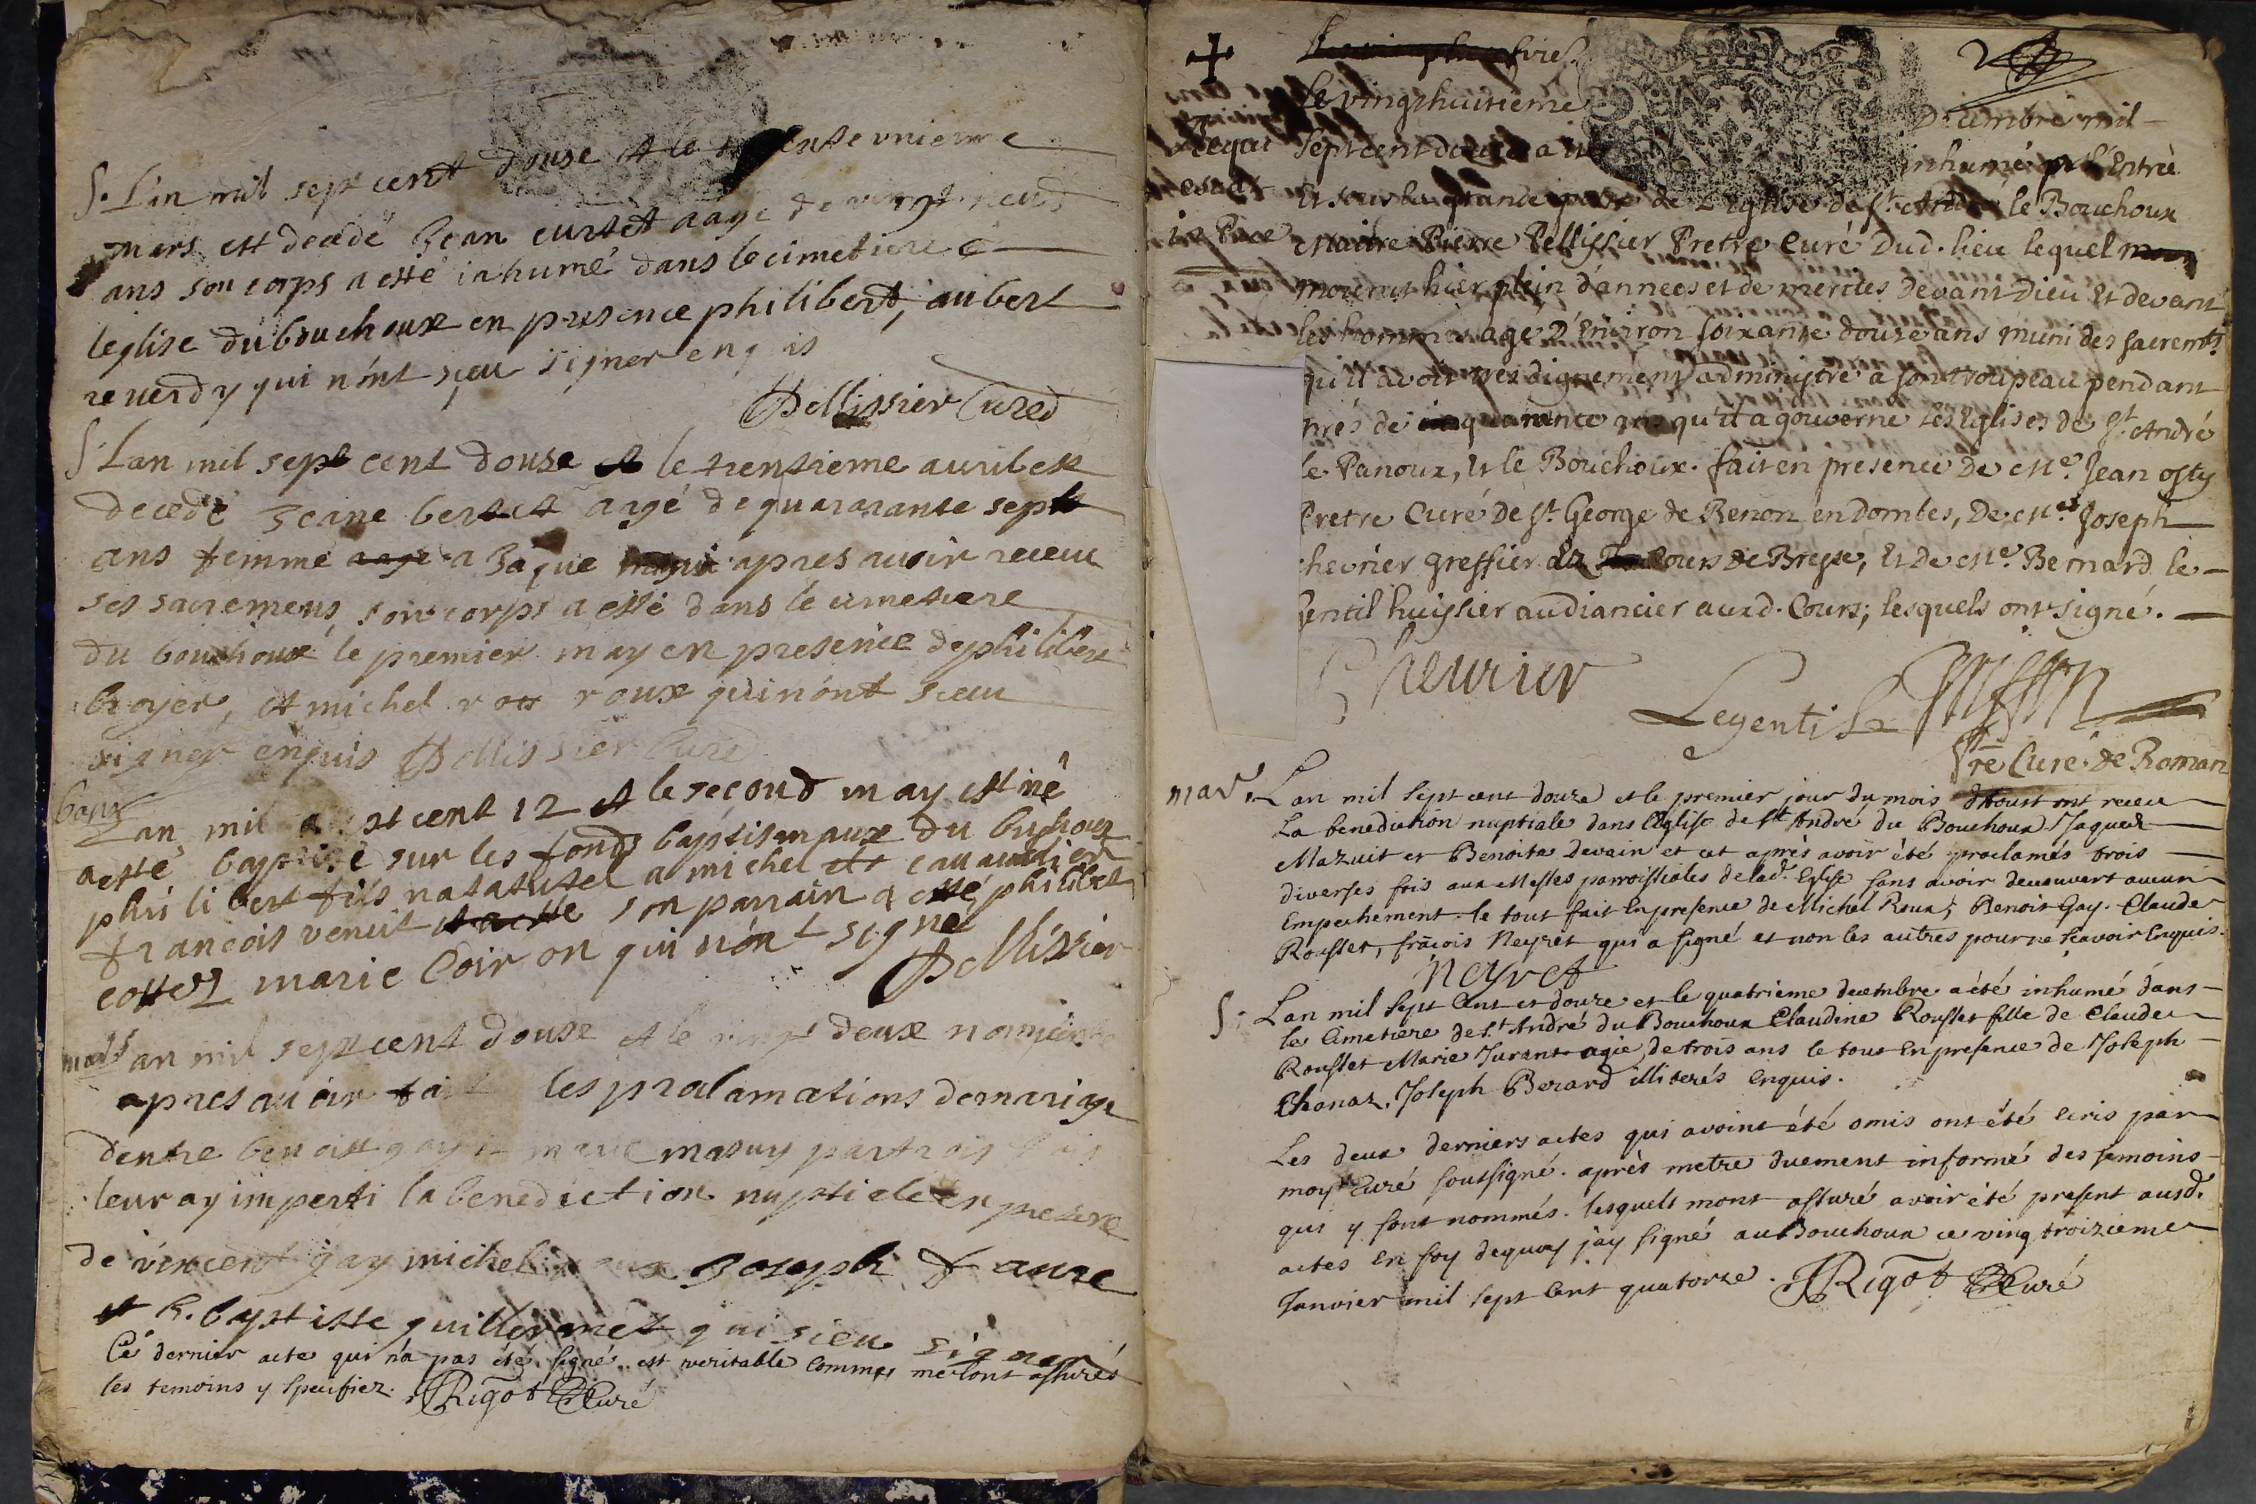 S. L'an mil sept cent douse et le trente unieme
mars est decedé Jean curtet aagé de vingt neuf
ans son corps a esté inhumé dans le cimetiere
leglise du bouchoux en presence philibert, aubert
reverdy qui n'ont sçeu signer enquis
Pellissier Curé
S. Lan mil sept cent douse et le trentieme avril est
decedé Jeane bertet agé de quararante sept
ans femme a Jaque apres avoir receu
ses sacremens, son corps a esté dans le cimetiere
du bouchoux le premier may en presence de philibert
broyer, et michel roux qui nont sceu
signer enquis Pellissier Curé
bap
Lan mil sept cent 12 et le second may est né
a esté baptisé sur les fonds baptismaux du buchoux
philibert fils natatutel a michel et
francois venuit son parrain a esté philibert
cottet marie Coiron qui n'ont signé
Pellissier
mar
Lan mil sept cent douse et le vingt deux
apres avoir fait les proclamations de mariage
dentre benoist gay et marie masuy par trois fois
leur ay imperti la benediction nuptiele en presence
de vincent gay michel roux Joseph favre
et h. baptiste guillermet qui sceu signer
Ce dernier acte qui n'a pas été signé est veritable comme me l'ont assurés
les temoins y specifiez. Rigot Curé
Le vingthuitieme Decembre mil
Requiescat Sept cent douze a été inhumé pr. l'Entrée
Et sous la grande porte de L'Eglise de St. André le Bouchoux
in Pace Maitre Pierre Pellissier Pretre Curé Dud. lieu lequel
mourut hier plein d'années et de merites devant Dieu Et devant
les hommes agé D'Environ soixante douze ans muni des sacremts
qu'il avoit tres dignement administré a son troupeau pendant
prés de quarante ans qu'il a gouverné les Eglises de St. André
le Panoux, et le Bouchoux. fait en presence de Me. Jean Osty
Pretre Curé De St. George de Renon en dombes, De Me. Joseph
chevrier greffier Cours de Bresse, Et de Me. Bernard le
Gentil huissier audiancier auxd. Cours; lesquels ont signé.
Cheurier
Legentil
Pre Curé de Roman
mar.
Lan mil sept cent douze et le premier jour du mois d'Aoust ont receu
La benediction nuptiale dans l'Eglise de St. André du Bouchoux Jaques
Mazuit et Benoite Devain et cet après avoir été proclamés trois
diverses fois aux Messes parroissiales de lad. Eglise sans avoir decouvert aucun
Empechement. le tout fait En presence de Michel Roux, Benoit Gay. Claude
Rousset, frãcois Neyret qui a signé et non les autres pour ne scavoir Enquis.
Neyret
S. Lan mil sept Cent et douze et le quatrieme decembre a été inhumé dans
le Cimetiere de St. André du Bouchoux Claudine Rousset fille de Claude
Rousset Marie Jurant agée de trois ans le tout En presence de Joseph
Chanaz. Joseph Berard illiterés Enquis.
Les deux derniers actes qui avoint été omis ont été ecris par
moy Curé soussigné. après metre duement informé des temoins
qui y sont nommés. lesquels mont assuré avoir été present ausd.
actes en foy dequoy j'ay signé au Bouchoux ce vingtroizieme
Janvier mil sept Cent quatorze. Rigot Curé